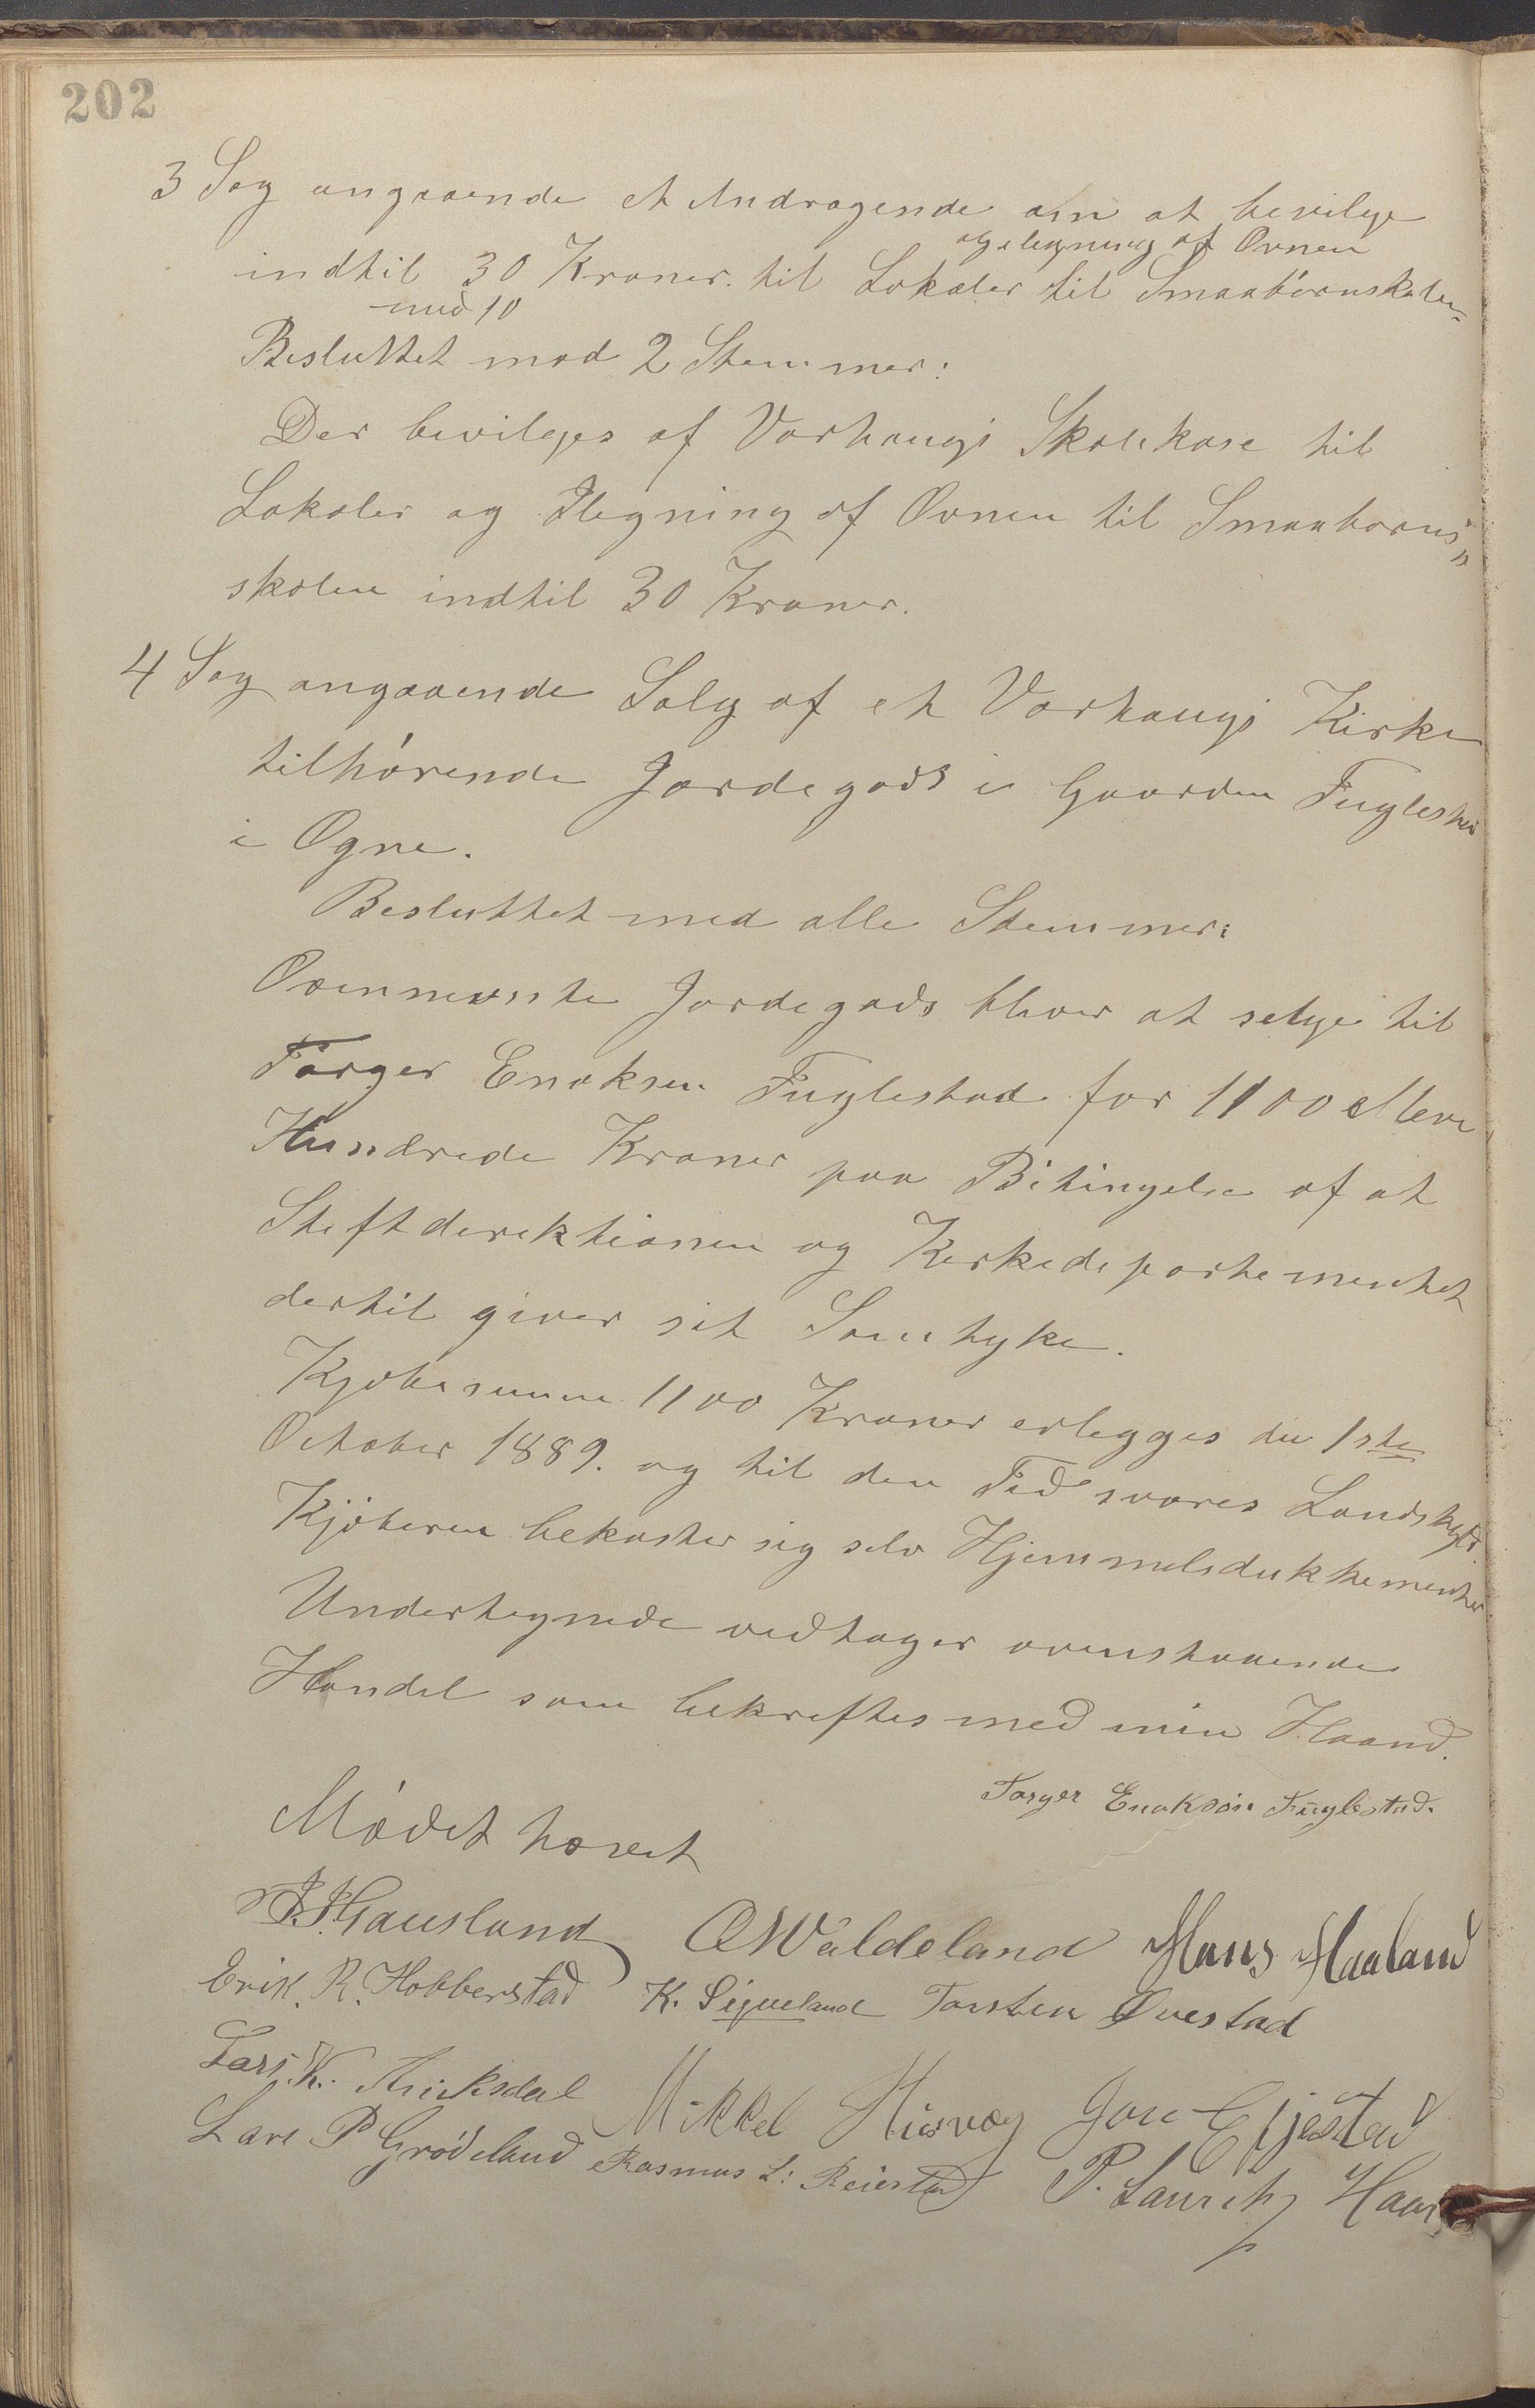 202
3 Sag angaaende et Andragende om at bevilge
og ilegning af Ovnen
indtil 30 Kroner. til Lokaler til Smaabörnskolen
med 10
Besluttet mod 2 Stemmer:
Der bevilges af Varhaugs Skolekase til
Lokaler og Ilegning af Ovnen til Smaaborns
skolen indtil 30 Kroner.
4 Sag angaaende Salg af et Varhaugs Kirke
tilhørende Jordegods i Gaarden Fuglestad
i Ogne.
Besluttet med alle Stemmer:
Ovennevnte Jordegods bliver at selge til
Torger Enoksen Fuglestad for 1100 elleve
Hundrede Kroner paa Bitingelse af at
Steftdirektionen og Kirkedepartementet
dertil giver sit Samtyke.
Kjøbesumme 1100 Kroner erlegges den 1ste
October 1889. og til den Tid svares Landskyld.
Kjöberen bekoster sig selv Hjemmelsdukkementer
Undertegnede vedtager ovenstaaende
Handel som bekreftes med min Haand.
Torger Enoksön Fuglestad.
Mødet hævet
Hausland O W Valdeland Hans Haaland
Erik. R. Hobberstad K. Sigveland Torsten Qvestad
Lars. K. Mikkel Jon
Lars P Grödeland Rasmus L: Reiestad P. Lauritz Haar